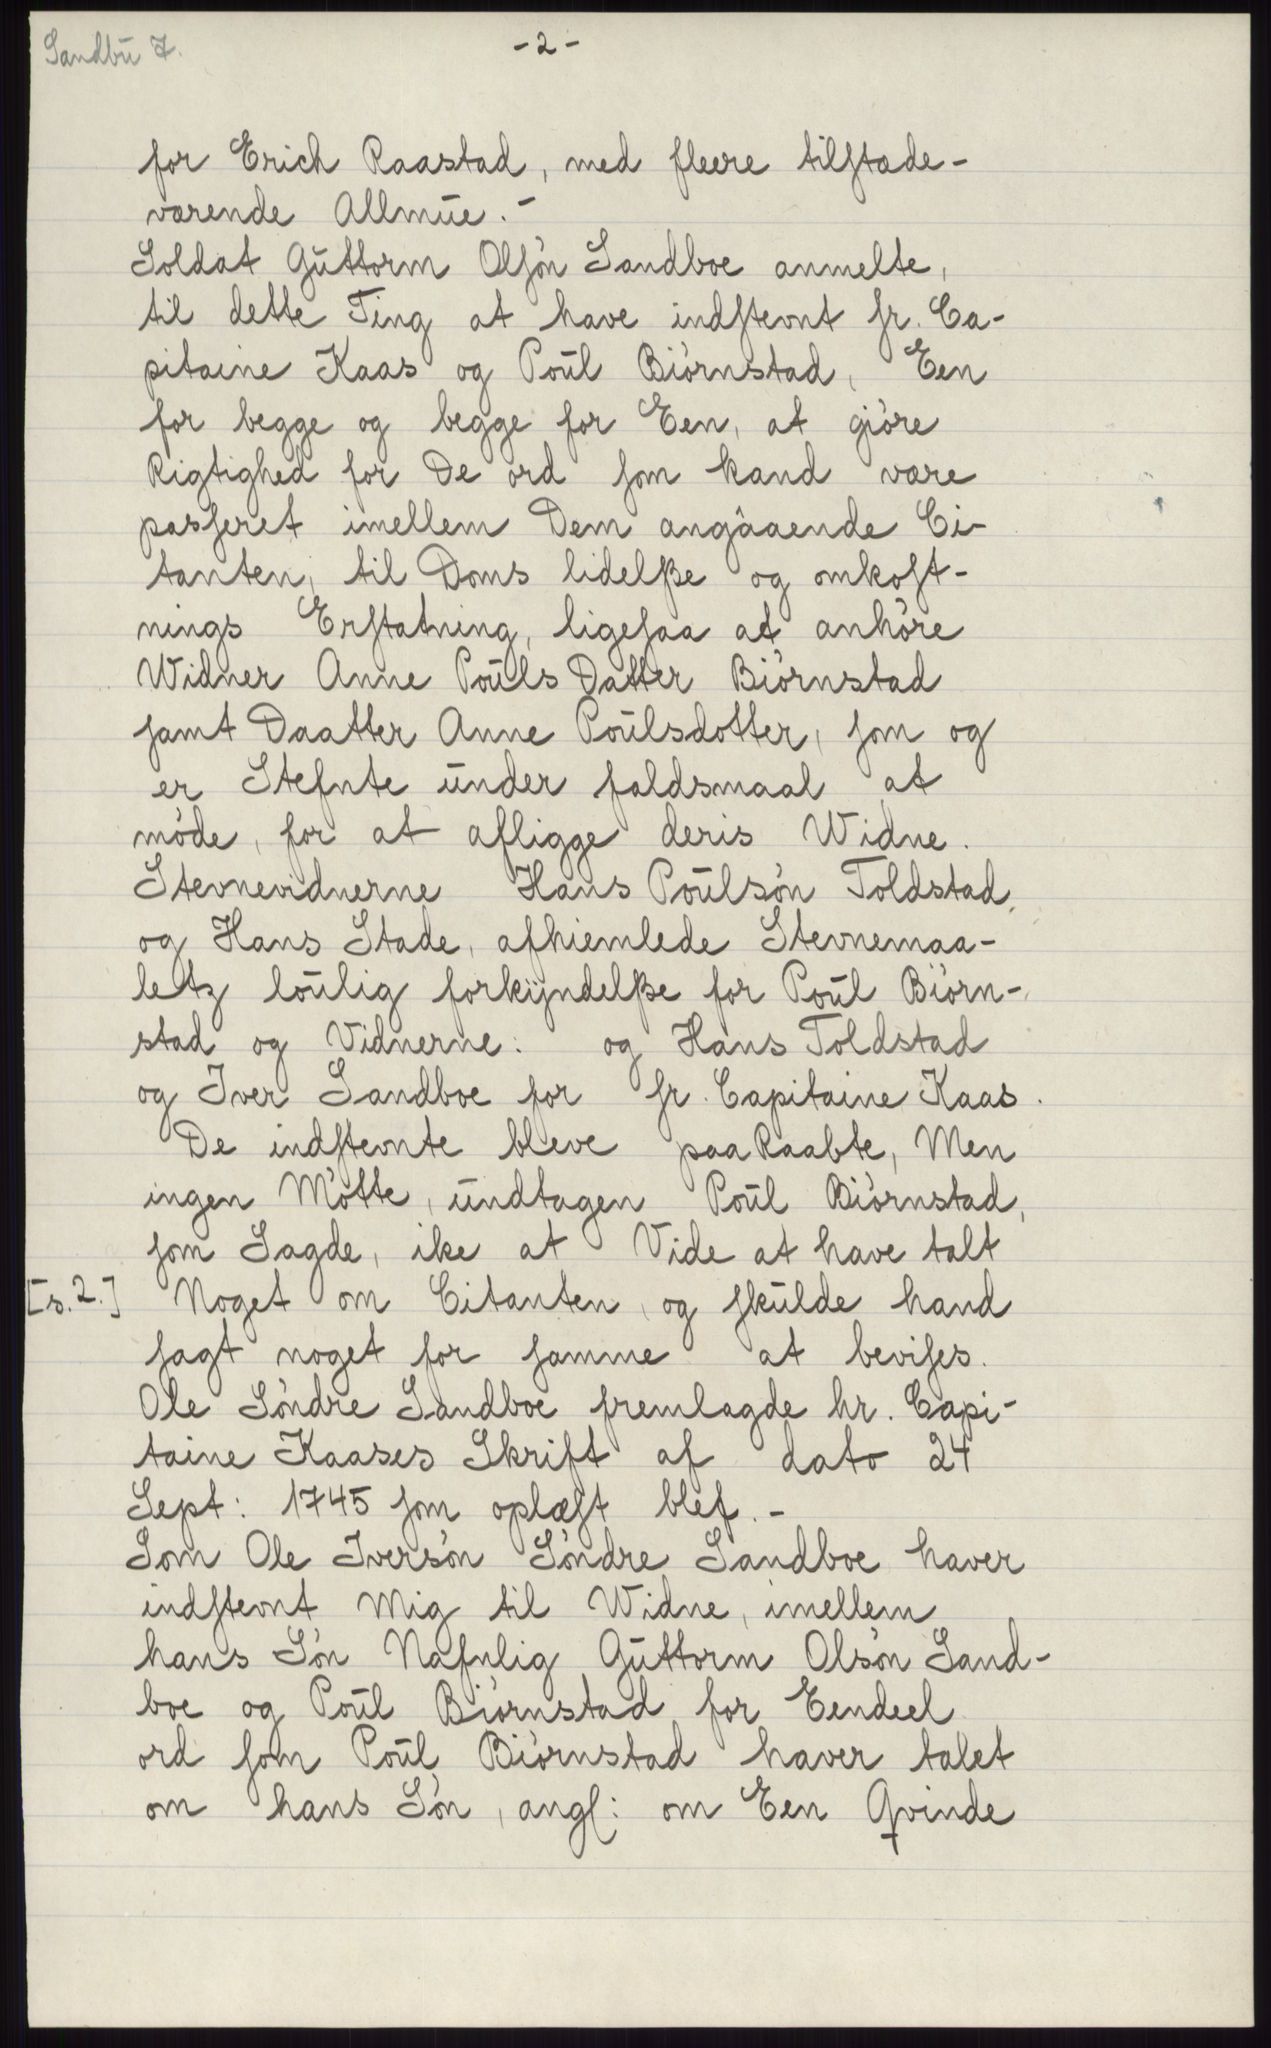 Sandbu 7.
- 2 -
for Erich Raastad, med fleere tilstæde-
værende Allmue. -
Soldat Guttorm Olsøn Sandboe anmelte,
til dette Ting at have indstevnt hr. Ca-
pitaine Kaas og Poul Biørnstad, Een
for begge og begge for Een, at giøre
Rigtighed for De ord som kand være
passeret imellem Dem angåaende Ci-
tanten, til Doms lidelße og omkost-
nings Erstatning, ligesaa at anhøre
Widner Anne Pouls Datter Biørnstad
samt Daatter Anne Poulsdotter, som og
er Stefnte under faldsmaal at
møde, for at afligge deris Widne.
Stevnevidnerne Hans Poulsøn Toldstad,
og Hans Stade, afhiemlede Stevnemaa-
letz loulig forkyndelße for Poul Biørn-
stad og Vidnerne: og Hans Toldstad
og Iver Sandboe for hr. Capitaine Kaas.
De indstevnte bleve paaRaabte, Men
ingen Møtte, undtagen Poul Biørnstad,
som Sagde, ike at Vide at have talt
[s. 2.] Noget om Citanten, og skulde hand
sagt noget for samme at bevises.
Ole Søndre Sandboe fremlagde hr. Capi-
taine Kaases Skrift af dato 24
Sept: 1745 som oplæst blef. -
Som Ole Iversøn Søndre Sandboe haver
indstevnt Mig til Widne, imellem
hans Søn Nafnlig Guttorm Olsøn Sand-
boe og Poul Biørnstad for Eendeel
ord som Poul Biørnstad haver talet
om hans Søn, angl: om Een Qvinde